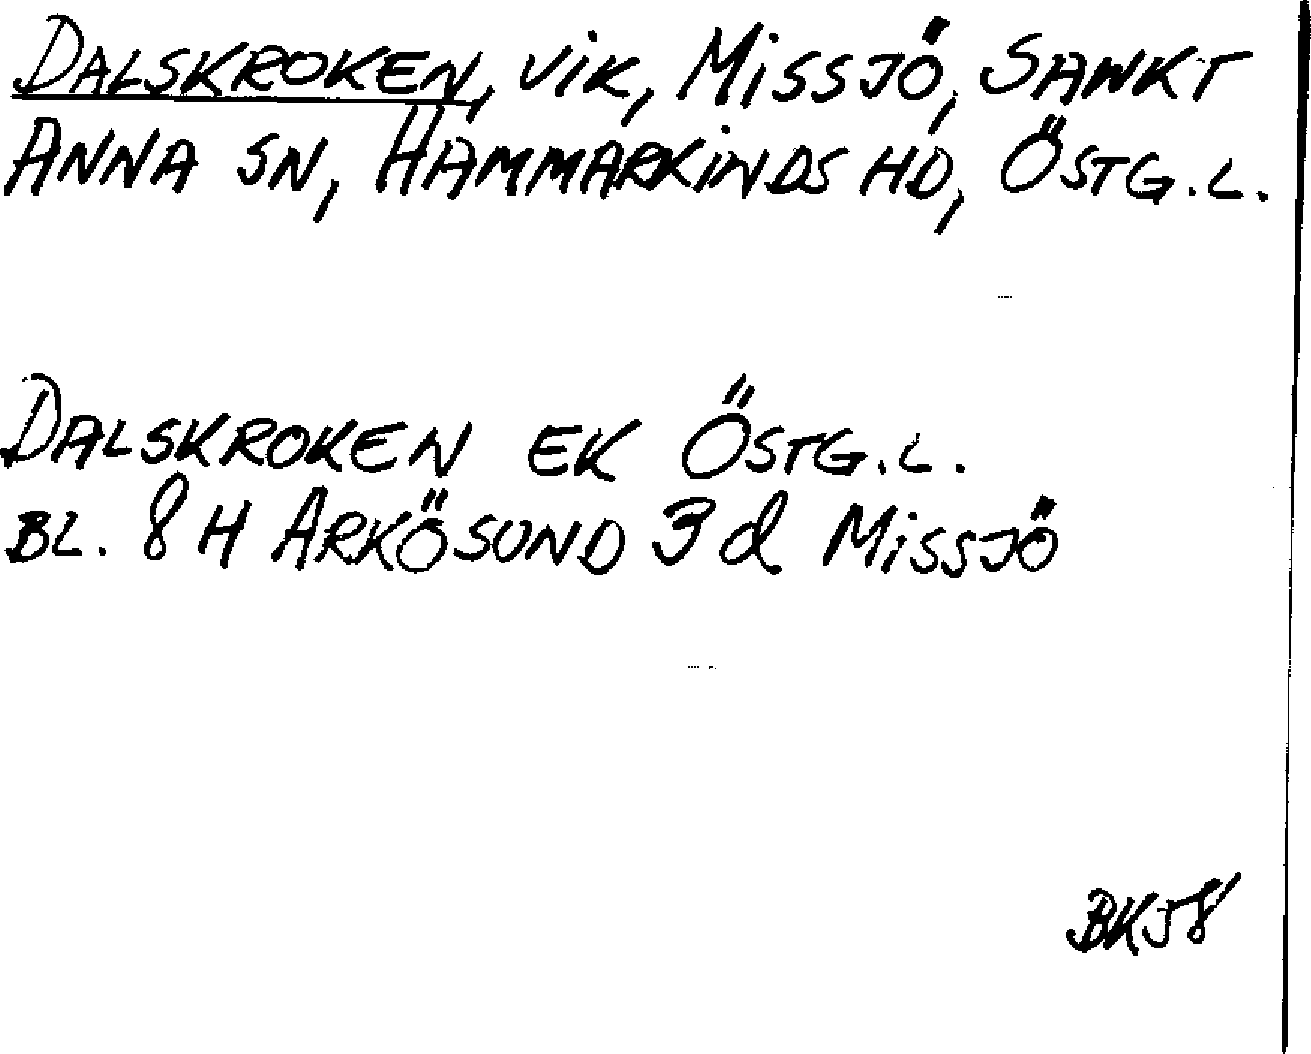 DALSKROKEN, VIK, MISSJÖ, SANKT
ANNA SN, HAMMARKINDS HD, ÖSTG.L.
DALSKROKEN EK ÖSTG.L.
BL. 8 H ARKÖSUND 3 d MISSJÖ